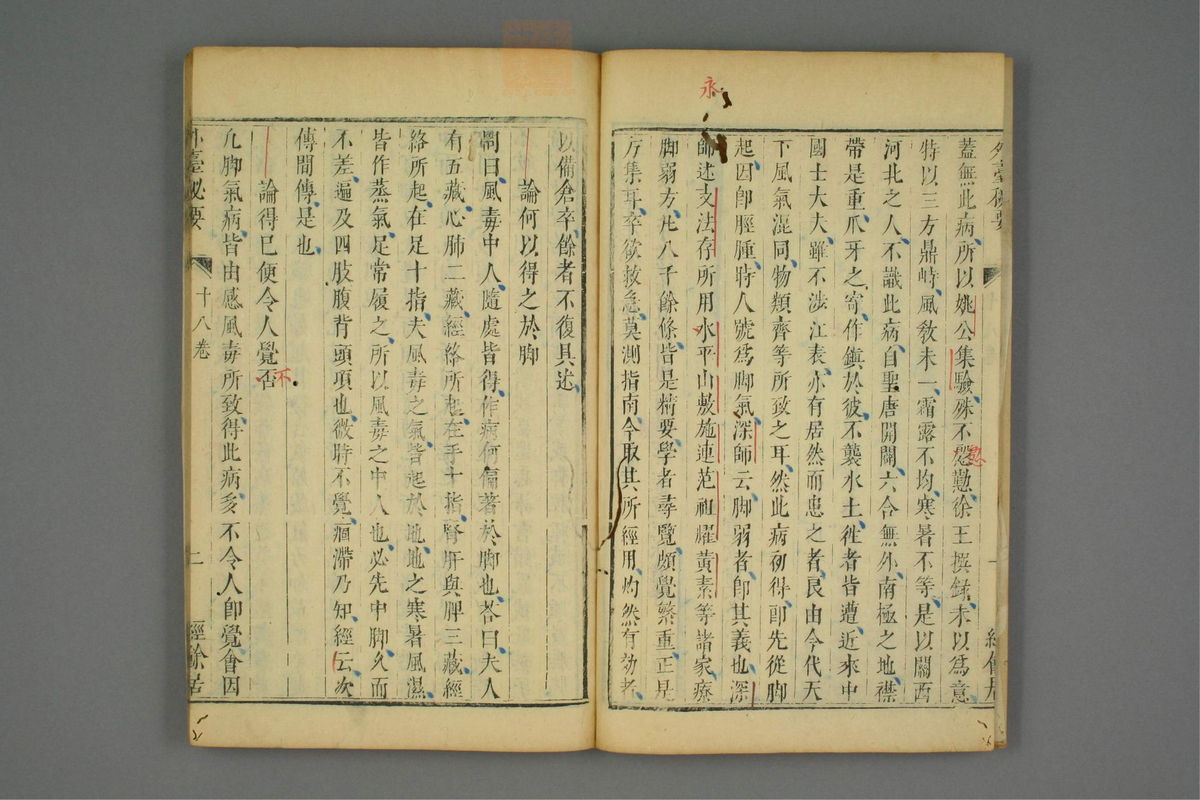 外臺秘要
蓋無此病所以姚公集驗殊不慇懃徐王撰錄未以爲意
特以三方鼎峙風敎未一霜露不均寒暑不等是以關西
河北之人不識此病自聖唐開闢六合無外南極之地襟
帶是重爪牙之寄作鎮於彼不襲水土徃者皆遭近來中
國士大夫雖不涉江表亦有居然而患之者良由今代天
下風氣混同物類齊等所致之耳然此病初得卽先從脚
起因卽脛腫時人號爲脚氣深師云脚弱者卽其義也深
師述支法存所用永平山敷施連范祖耀黃素等諸家療
脚弱方凡八千餘條皆是精要學者尋覽頗覺繁重正是
方集耳卒欲救急莫測指南今取其所經用灼然有効者
以備倉卒餘者不復具述
論何以得之於脚
問曰風毒中人隨處皆得作病何偏著於脚也荅曰夫人
有五藏心肺二藏經絡所起在手十指腎肝與脾三藏經
絡所起在足十指夫風毒之氣皆起於地地之寒暑風濕
皆作蒸氣足常履之所以風毒之中人也必先中脚久而
不差遍及四肢腹背頭項也微時不覺痼滯乃知經云次
傳間傳是也
論得已便令人覺否
不
凡脚氣病皆由感風毒所致得此病多不令人卽覺會因
外臺秘要 十八卷 二 經餘居
永
慇